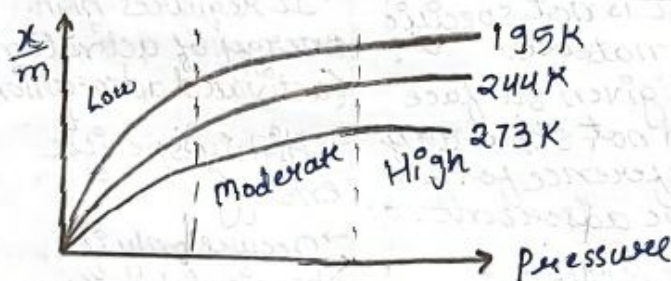 x/m
Low
Moderate
High
195K
244K
273K
Pressure